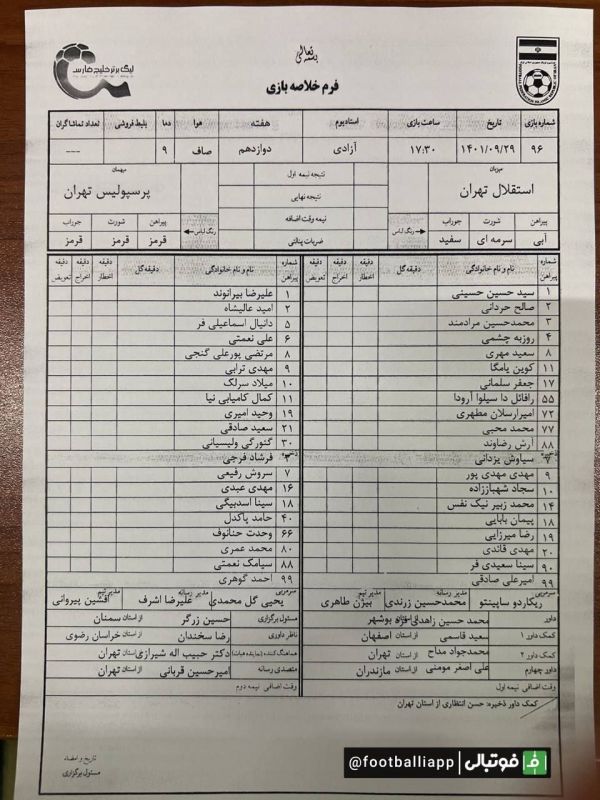 بسمه تعالی
لیگ برتر خلیج فارس
فرم خلاصه بازی
شماره بازی تاریخ ساعت بازی استادیوم هفته هوا دما بلیط فروشی تعداد تماشاگران
۹۶ ۱۴۰۱/۰۹/۲۹ ۱۷:۳۰ آزادی دوازدهم صاف ۹ ---
میزبان نتیجه نیمه اول میهمان
استقلال تهران نتیجه نهایی پرسپولیس تهران
پیراهن شورت جوراب رنگ لباس نیمه وقت اضافه رنگ لباس پیراهن شورت جوراب
آبی سرمه ای سفید ضربات پنالتی قرمز قرمز قرمز
شماره پیراهن نام و نام خانوادگی دقیقه گل دقیقه اخطار دقیقه اخراج دقیقه تعویض شماره پیراهن نام و نام خانوادگی دقیقه گل دقیقه اخطار دقیقه اخراج دقیقه تعویض
۱ سید حسین حسینی ۱ علیرضا بیرانوند
۲ صالح حردانی ۲ امید عالیشاه
۳ محمدحسین مرادمند ۵ دانیال اسماعیلی فر
۴ روزبه چشمی ۶ علی نعمتی
۸ سعید مهری ۸ مرتضی پورعلی گنجی
۱۱ کوین یامگا ۹ مهدی ترابی
۱۷ جعفر سلمانی ۱۰ میلاد سرلک
۵۵ رافائل دا سیلوا آرودا ۱۱ کمال کامیابی نیا
۷۲ امیرارسلان مطهری ۱۹ وحید امیری
۷۷ محمد محبی ۲۱ سعید صادقی
۸۸ آرش رضاوند ۳۰ گئورگی ولیسیانی
۷ سیاوش یزدانی فرشاد فرجی
۹ مهدی مهدی پور ۷ سروش رفیعی
۱۰ سجاد شهباززاده ۱۶ مهدی عبدی
۱۴ محمد زبیر نیک نفس ۱۸ سینا اسدبیگی
۱۸ پیمان بابایی ۴۰ حامد پاکدل
۱۹ رضا میرزایی ۶۶ وحدت حنانوف
۲۰ مهدی قائدی ۸۰ محمد عمری
۹۰ سینا سعیدی فر ۸۸ سیامک نعمتی
۹۹ امیرعلی صادقی ۹۹ احمد گوهری
سرمربی ریکاردو ساپینتو مدیر رسانه محمدحسین زرندی مدیر تیم بیژن طاهری سرمربی یحیی گل محمدی مدیر رسانه علیرضا اشرف مدیر تیم افشین پیروانی
داور محمد حسین زاهدی فرد بوشهر مسئول برگزاری حسین زرگر از استان سمنان
کمک داور ۱ سعید قاسمی از استان اصفهان ناظر داوری رضا سخندان از استان خراسان رضوی
کمک داور ۲ محمدجواد مداح از استان تهران هماهنگ کننده (نماینده هیات) دکتر حبیب اله شیرازی از استان تهران
داور چهارم علی اصغر مومنی از استان مازندران متصدی رسانه امیرحسین قربانی از استان تهران
وقت اضافی نیمه اول وقت اضافی نیمه دوم
کمک داور ذخیره: حسن انتظاری از استان تهران
تاریخ و امضاء
مسئول برگزاری
@footballiapp | فوتبالی